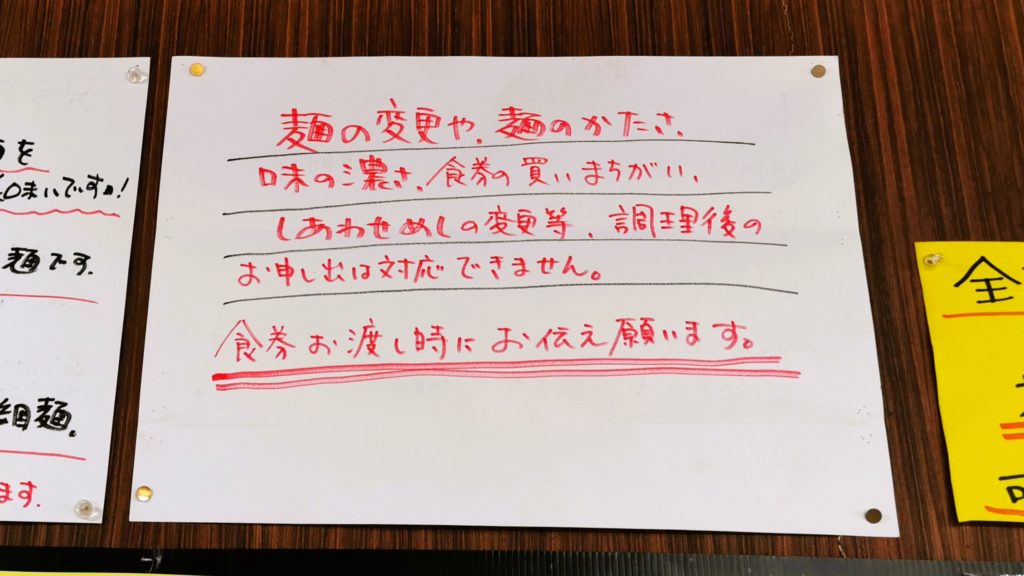 麺の変更や、麺のかたさ、
味の濃さ、食券の買いまちがい、
しあわせめしの変更等、調理後の
お申し出は対応できません。
食券お渡し時にお伝え願います。
を
味いですョ!
麺です.
細麺.
ます.
全